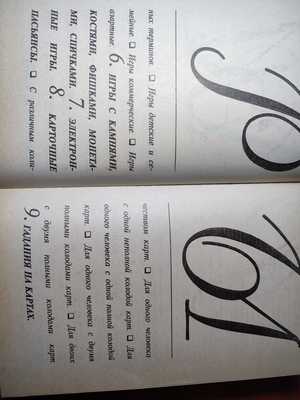 ных терминов. ❑ Игры детские и се-
мейные. ❑ Игры коммерческие. ❑ Игры
азартные. 6. ИГРЫ С КАМНЯМИ,
КОСТЯМИ, ФИШКАМИ, МОНЕТА-
МИ, СПИЧКАМИ. 7. ЭЛЕКТРОН-
НЫЕ ИГРЫ. 8. КАРТОЧНЫЕ
ПАСЬЯНСЫ. ❑ С различным коли-
чеством карт. ❑ Для одного человека
с одной неполной колодой карт. ❑ Для
одного человека с одной полной колодой
карт. ❑ Для одного человека с двумя
полными колодами карт. ❑ Для двоих
с двумя полными колодами карт.
9. ГАДАНИЯ НА КАРТАХ.